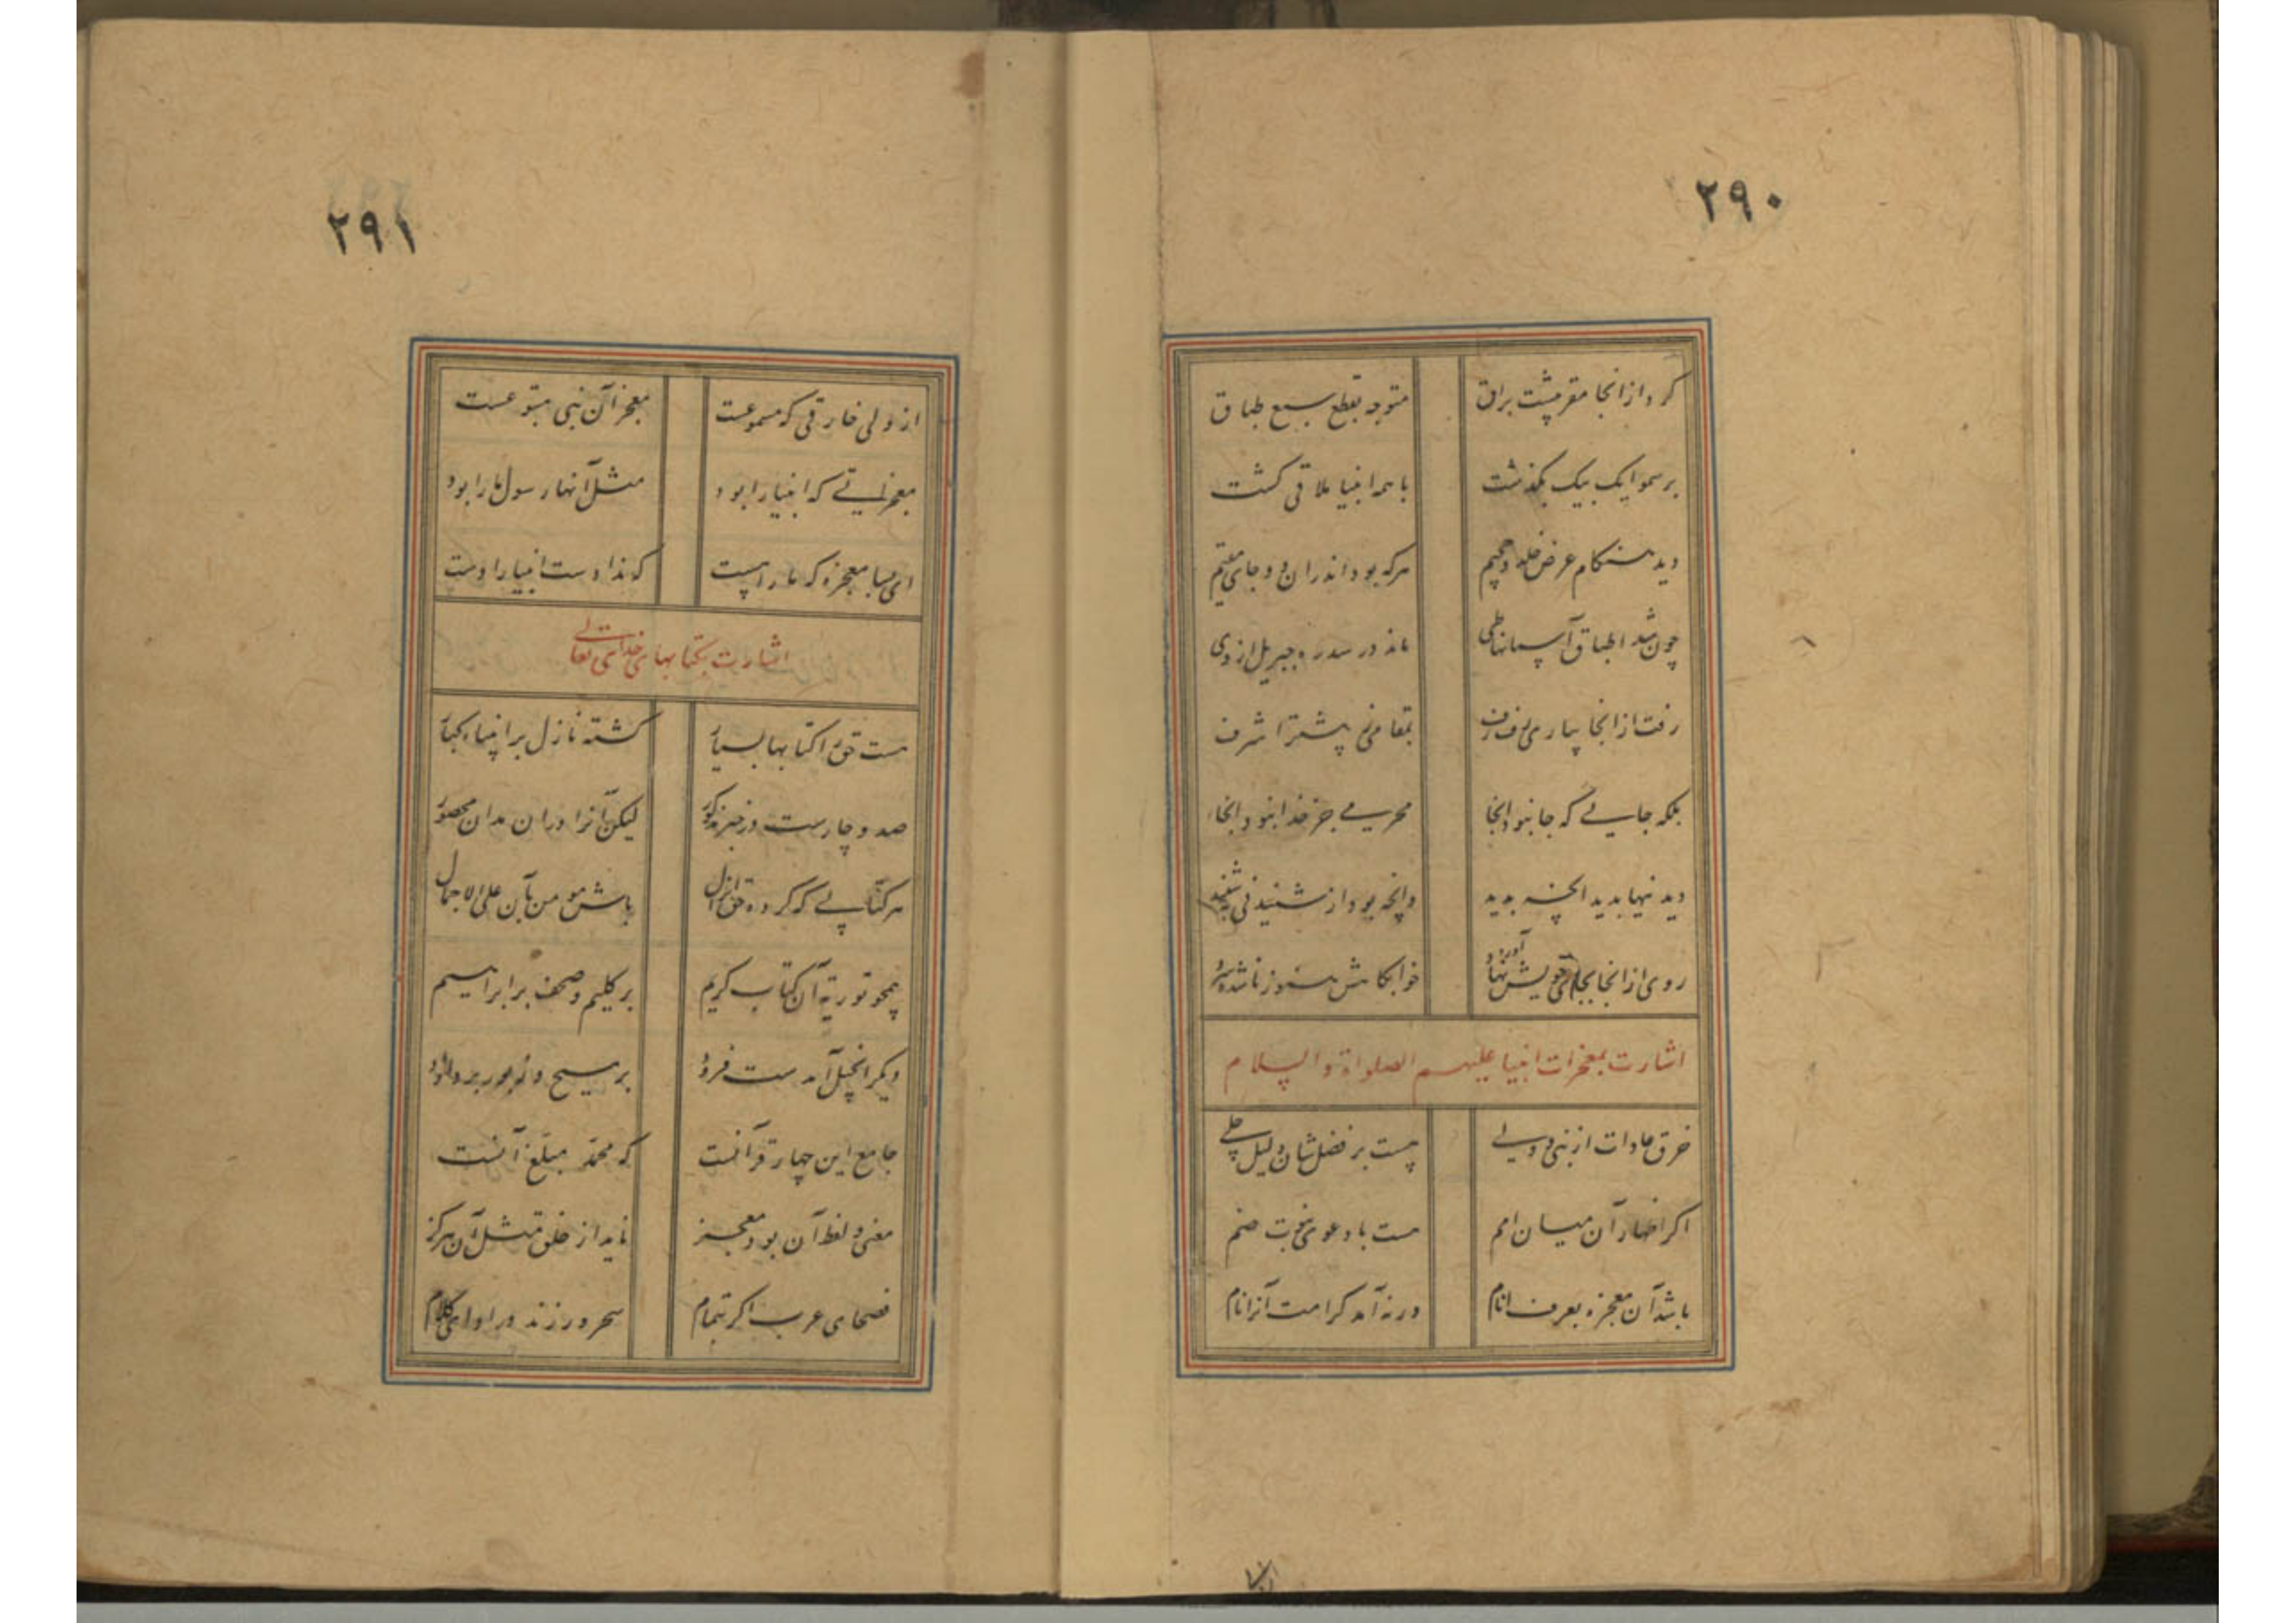 ۲۹۰
کرد از انجا مقر پشت براق متوجه بقطع سبع طباق
بر سمو ایک بیک بگذشت با همه انبیا ملاقی کشت
دید هنکام عرض خلد و جحیم هرکه بود اندران دو جای مقیم
چون شد اطباق آسمانها طی ماند در سدره جبریل از وی
رفت از انجا بیاری رفرف بمقامی پیشتر اشرف
بلکه جایے که جا نبود انجا محرمے جز خدا نبود انجا
دیدنیها بدید انچه بدید وانچه بود از شنیدنی بشنید
روی از انجا بجای خویش نهاد آورد خوابکاهش هنوز ناشده سرد
اشارت بمعجزات انبیا علیهم الصلواة والسلام
خرق عادات از نبی و ولے هست بر فضلشان دلیل جلے
اکر اظهار آن میان امم هست با دعوی نبوت ضم
باشد آن معجزه بعرف انام ورنه آمد کرامت آنرا نام
۲۹۱
از ولی خارقی که مسموعست معجز آن نبی متبوعست
معجزاتے که انبیا را بود مثل آنها رسول ما را بود
ای بسا معجزه که ما را هست که نداد است انبیا را دست
اشارت بکتابهای خدای تعالے
هست حق را کتابها بسیار کشته نازل بر انبیاء کبار
صد و چارست در خبر مذکور لیکن آنرا دران مدان محصور
هر کتابے که کرده حق انزال باش مومن بآن علی الاجمال
همچو توریة آن کتاب کریم بر کلیم و صحف بر ابراهیم
دیکر انجیل آمدست فرود بر مسیح و زبور بر داود
جامع این چهار قرآنست که محمّد مبلّغ آنست
معنی و لفظ آن بود معجز ناید از خلق مثل آن هرکز
فصحای عرب اکر بتمام سحر ورزند در اداے کلام